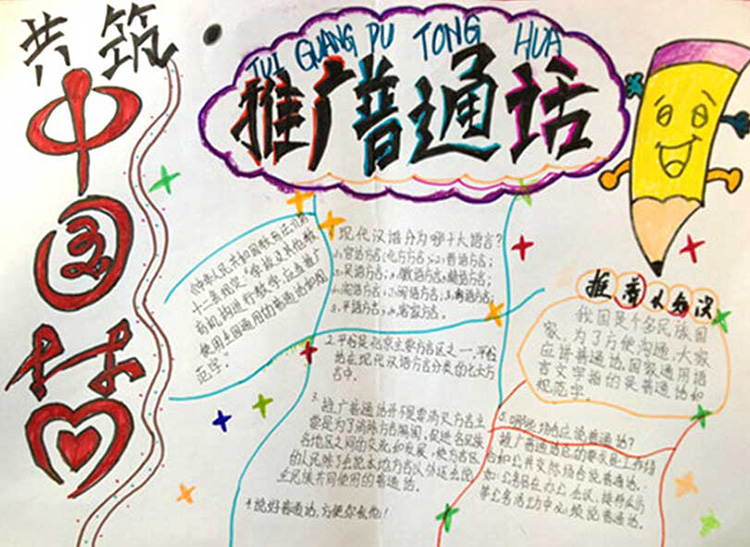 共筑
中国梦
TUI GUANG PU TONG HUA
推广普通话
《中华人民共和国教育法》第
十二条规定"学校及其他教
育机构进行教学,应当推广
使用全国通用的普通话和规
范字"
现代汉语分为哪十大语言?
1.官话方言(北方方言);2.晋语方言;
3.吴语方言;4.徽语方言;5.赣语方言;
6.湘语方言;7.闽语方言;8.粤语方言;
9.平话方言;10.客家方言.
2.
北京主要方言区之一,
在现代汉语方言分类的七大方
言中.
3.推广普通话并不是要消灭方言主
要是为了消除方言隔阂,促进各民族
各地区之间的交流和发展,使方言区
的人民除了会说本地方言以外还会说
民族共同使用的普通话.
4.说好普通话,方便你我他!
我国是个多民族国
家,为了方便沟通,大家
应讲普通话,国家通用语
言文字指的是普通话和
规范字.
5.哪些场合应说普通话?
推广普通话
和公共交际场合说普通话.
如:公务员在办公、会议、接待
等公务活动中必须说普通话.